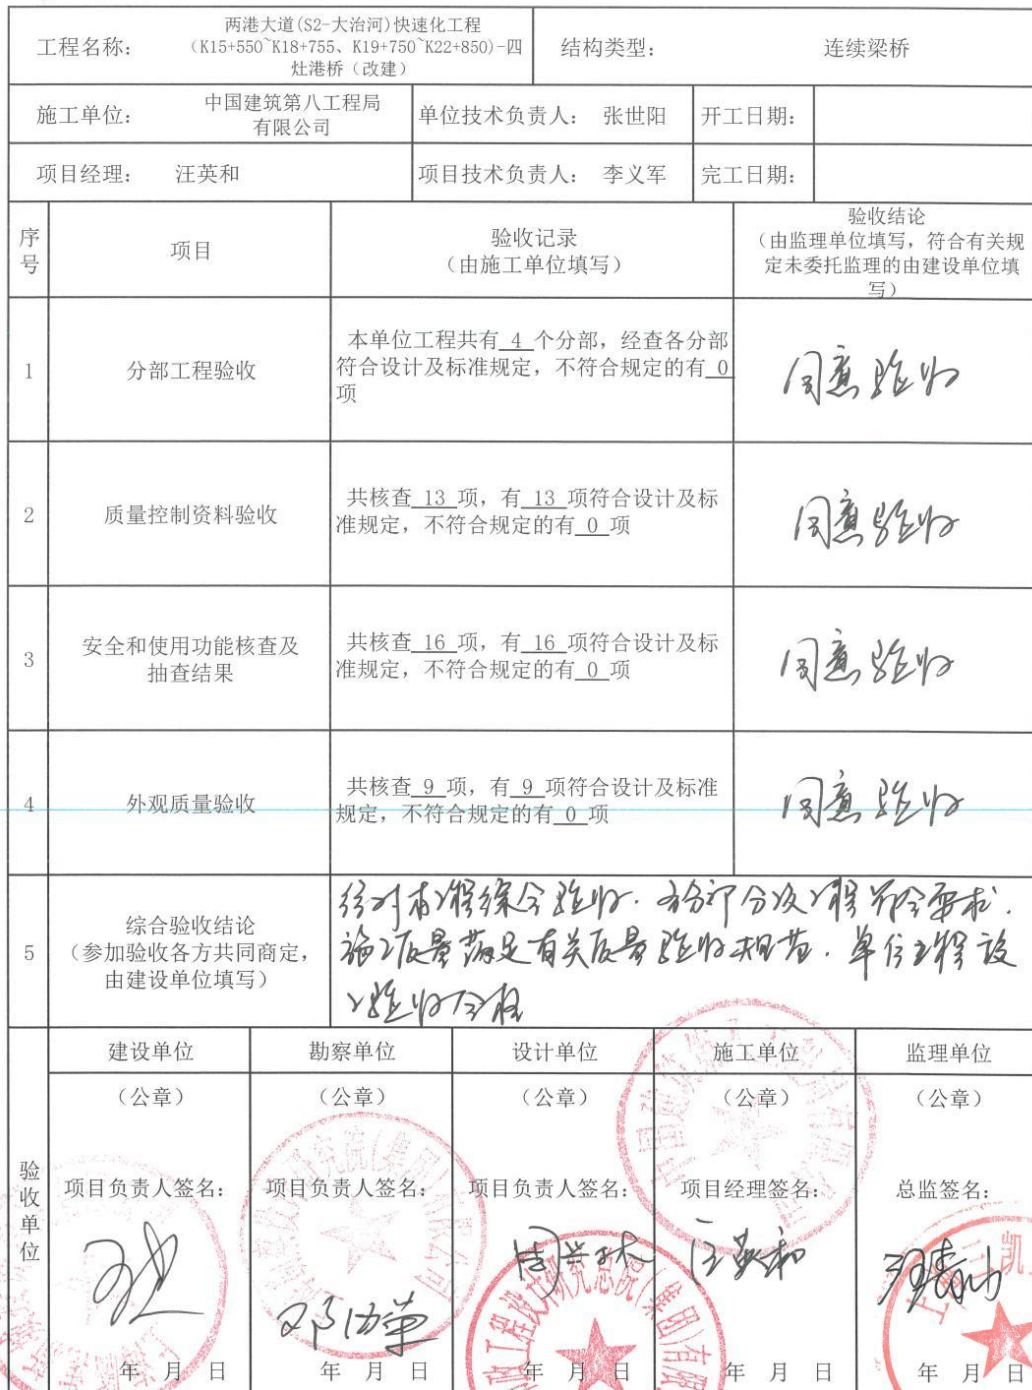 工程名称：
两港大道(S2-大治河)快速化工程
（K15+550~K18+755、K19+750~K22+850)-四
灶港桥（改建）
结构类型：
连续梁桥
施工单位：
中国建筑第八工程局
有限公司
单位技术负责人： 张世阳
开工日期：
项目经理： 汪英和
项目技术负责人： 李义军
完工日期：
序
号
项目
验收记录
（由施工单位填写）
验收结论
（由监理单位填写，符合有关规
定未委托监理的由建设单位填
写）
1
分部工程验收
本单位工程共有 4 个分部，经查各分部
符合设计及标准规定，不符合规定的有 0
项
同意验收
2
质量控制资料验收
共核查 13 项，有 13 项符合设计及标
准规定，不符合规定的有 0 项
同意验收
3
安全和使用功能核查及
抽查结果
共核查 16 项，有 16 项符合设计及标
准规定，不符合规定的有 0 项
同意验收
4
外观质量验收
共核查 9 项，有 9 项符合设计及标准
规定，不符合规定的有 0 项
同意验收
5
综合验收结论
（参加验收各方共同商定，
由建设单位填写）
经对本工程综合验收．各分部分项工程符合要求．
施工质量满足有关质量验收规范．单位工程
验收合格
验
收
单
位
建设单位
勘察单位
设计单位
施工单位
监理单位
（公章）
（公章）
（公章）
（公章）
（公章）
项目负责人签名：
项目负责人签名：
项目负责人签名：
项目经理签名：
总监签名：
汪英和
年 月 日
年 月 日
年 月 日
年 月 日
年 月 日